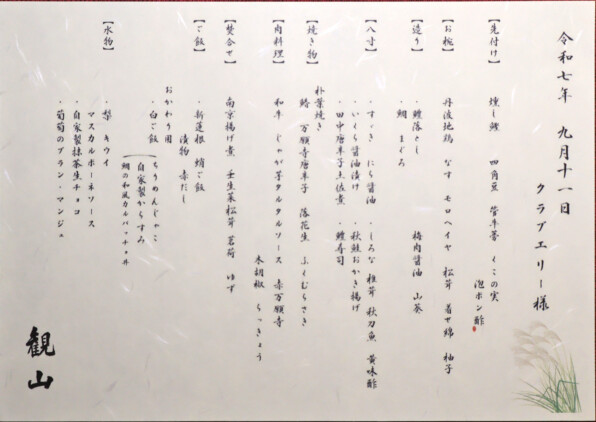 令和七年 九月十一日
クラブエリー様
【先付け】
燻し鰹 四角豆 管牛蒡 くこの実
泡ポン酢
【お椀】
丹波地鶏 なす モロヘイヤ 松茸 着せ綿 柚子
【造り】
・鱧落とし 梅肉醤油 山葵
・鯛 まぐろ
【八寸】
・すっき にら醤油 ・しろな 椎茸 秋刀魚 黄味酢
・いくら醤油漬け ・秋鮭おかき揚げ
・田中唐辛子土佐煮 ・鱧寿司
【焼き物】
朴葉焼き
鰆 万願寺唐辛子 落花生 ふくむらさき
【肉料理】
和牛 じゃが芋タルタルソース 赤万願寺
本胡椒 らっきょう
【焚合せ】
南京揚げ煮 壬生菜松茸 茗荷 ゆず
【ご飯】
・新蓮根 蛸ご飯
漬物 赤だし
おかわり用
・白ご飯
ちりめんじゃこ
自家製からすみ
鯛の和風カルパッチョ丼
【水物】
・梨 キウイ
マスカルポーネソース
・自家製抹茶生チョコ
・葡萄のブラン・マンジェ
観山